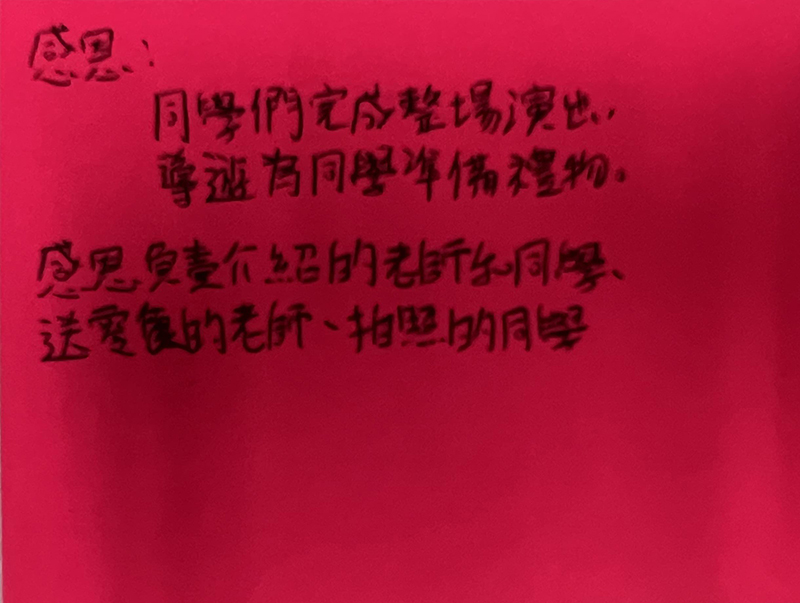 感恩：
同學們完成整場演出，
導遊有同學準備禮物。
感恩負責介紹的老師和同學、
送零食的老師、拍照的同學